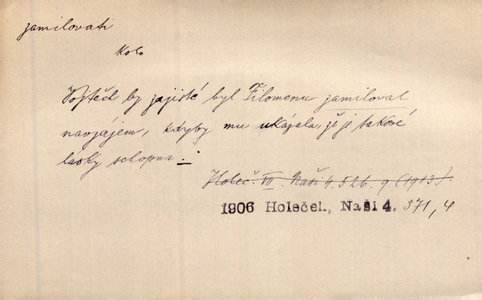 zamilovati
koho
Vojtěch by zajisté byl Filomenu zamiloval
navzájem, kdyby mu ukázala, že je takové
lásky schopna.
Holeč. VII. Naši 4. 526. 9. (1913)
1906 Holeček, Naši 4. 371, 4